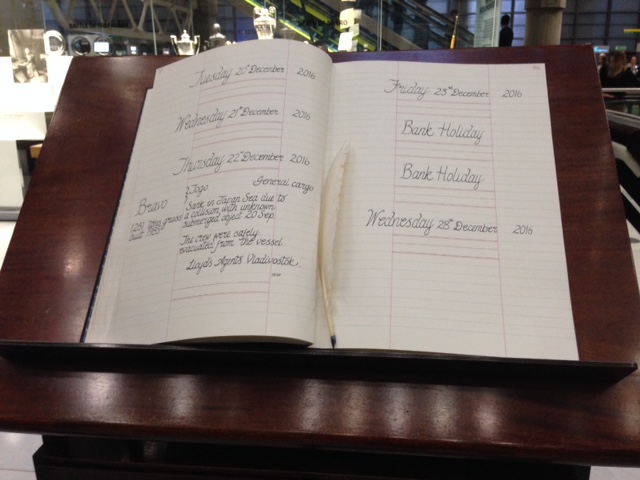 Tuesday 20th December 2016
Wednesday 21st December
Thursday 22nd December 2016
Bravo
} Togo
General cargo
Sank in Japan Sea due to
a collision with unknown
submerged object 20 Sep.
1,251 gross
Built
The crew were safely
evacuated from the vessel.
Lloyd's Agents Vladivostok.
Friday 23rd December 2016
Bank Holiday
Bank Holiday
Wednesday 28th December 2016